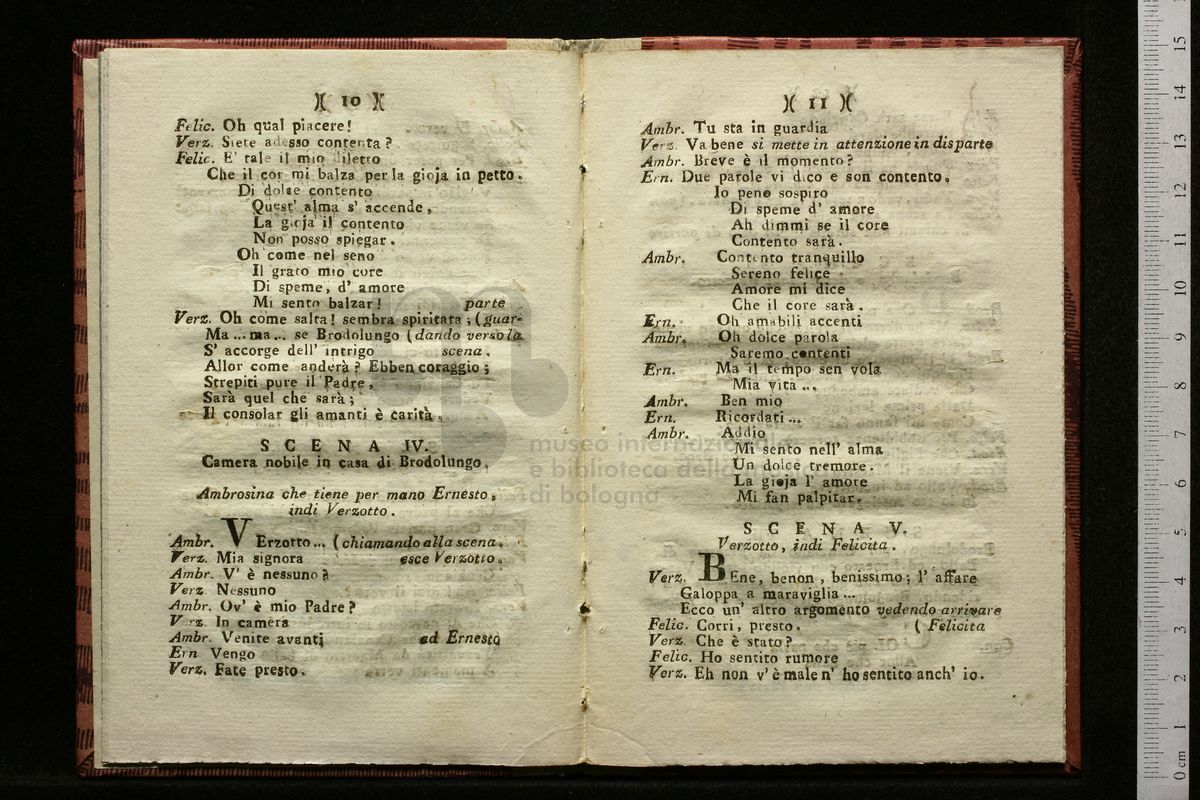 )( 10 )(
Felic. Oh qual piacere!
Verz. Siete adesso contenta?
Felic. E' tale il mio diletto
Che il cor mi balza per la gioja in petto.
Di dolce contento
Quest' alma s' accende,
La gioja il contento
Non posso spiegar.
Oh come nel seno
Il grato mio core
Di speme, d' amore
Mi sento balzar! parte
Verz. Oh come salta! sembra spiritata; (guar-
Ma... ma... se Brodolungo (dando verso la
S' accorge dell' intrigo scena.
Allor come anderà? Ebben coraggio;
Strepiti pure il Padre,
Sarà quel che sarà;
Il consolar gli amanti è carità.
SCENA IV.
Camera nobile in casa di Brodolungo,
Ambrosina che tiene per mano Ernesto,
indi Verzotto.
Ambr. VErzotto... (chiamando alla scena.
Verz. Mia signora esce Verzotto.
Ambr. V' è nessuno?
Verz. Nessuno
Ambr. Ov' è mio Padre?
Verz. In camera
Ambr. Venite avanti ad Ernesto
Ern. Vengo
Verz. Fate presto.
)( 11 )(
Ambr. Tu sta in guardia
Verz. Va bene si mette in attenzione in disparte
Ambr. Breve è il momento?
Ern. Due parole vi dico e son contento.
Io peno sospiro
Di speme d' amore
Ah dimmi se il core
Contento sarà.
Ambr. Contento tranquillo
Sereno felice
Amore mi dice
Che il core sarà.
Ern. Oh amabili accenti
Ambr. Oh dolce parola
Saremo contenti
Ern. Ma il tempo sen vola
Mia vita...
Ambr. Ben mio
Ern. Ricordati...
Ambr. Addio
Mi sento nell' alma
Un dolce tremore.
La gioja l' amore
Mi fan palpitar.
SCENA V.
Verzotto, indi Felicita.
Verz. BEne, benon, benissimo; l' affare
Galoppa a maraviglia...
Ecco un' altro argomento vedendo arrivare
Felic. Corri, presto. (Felicita
Verz. Che è stato?
Felic. Ho sentito rumore
Verz. Eh non v' è male n' ho sentito anch' io.
museo internazionale
e biblioteca della
di bologna
0 cm 1 2 3 4 5 6 7 8 9 10 11 12 13 14 15